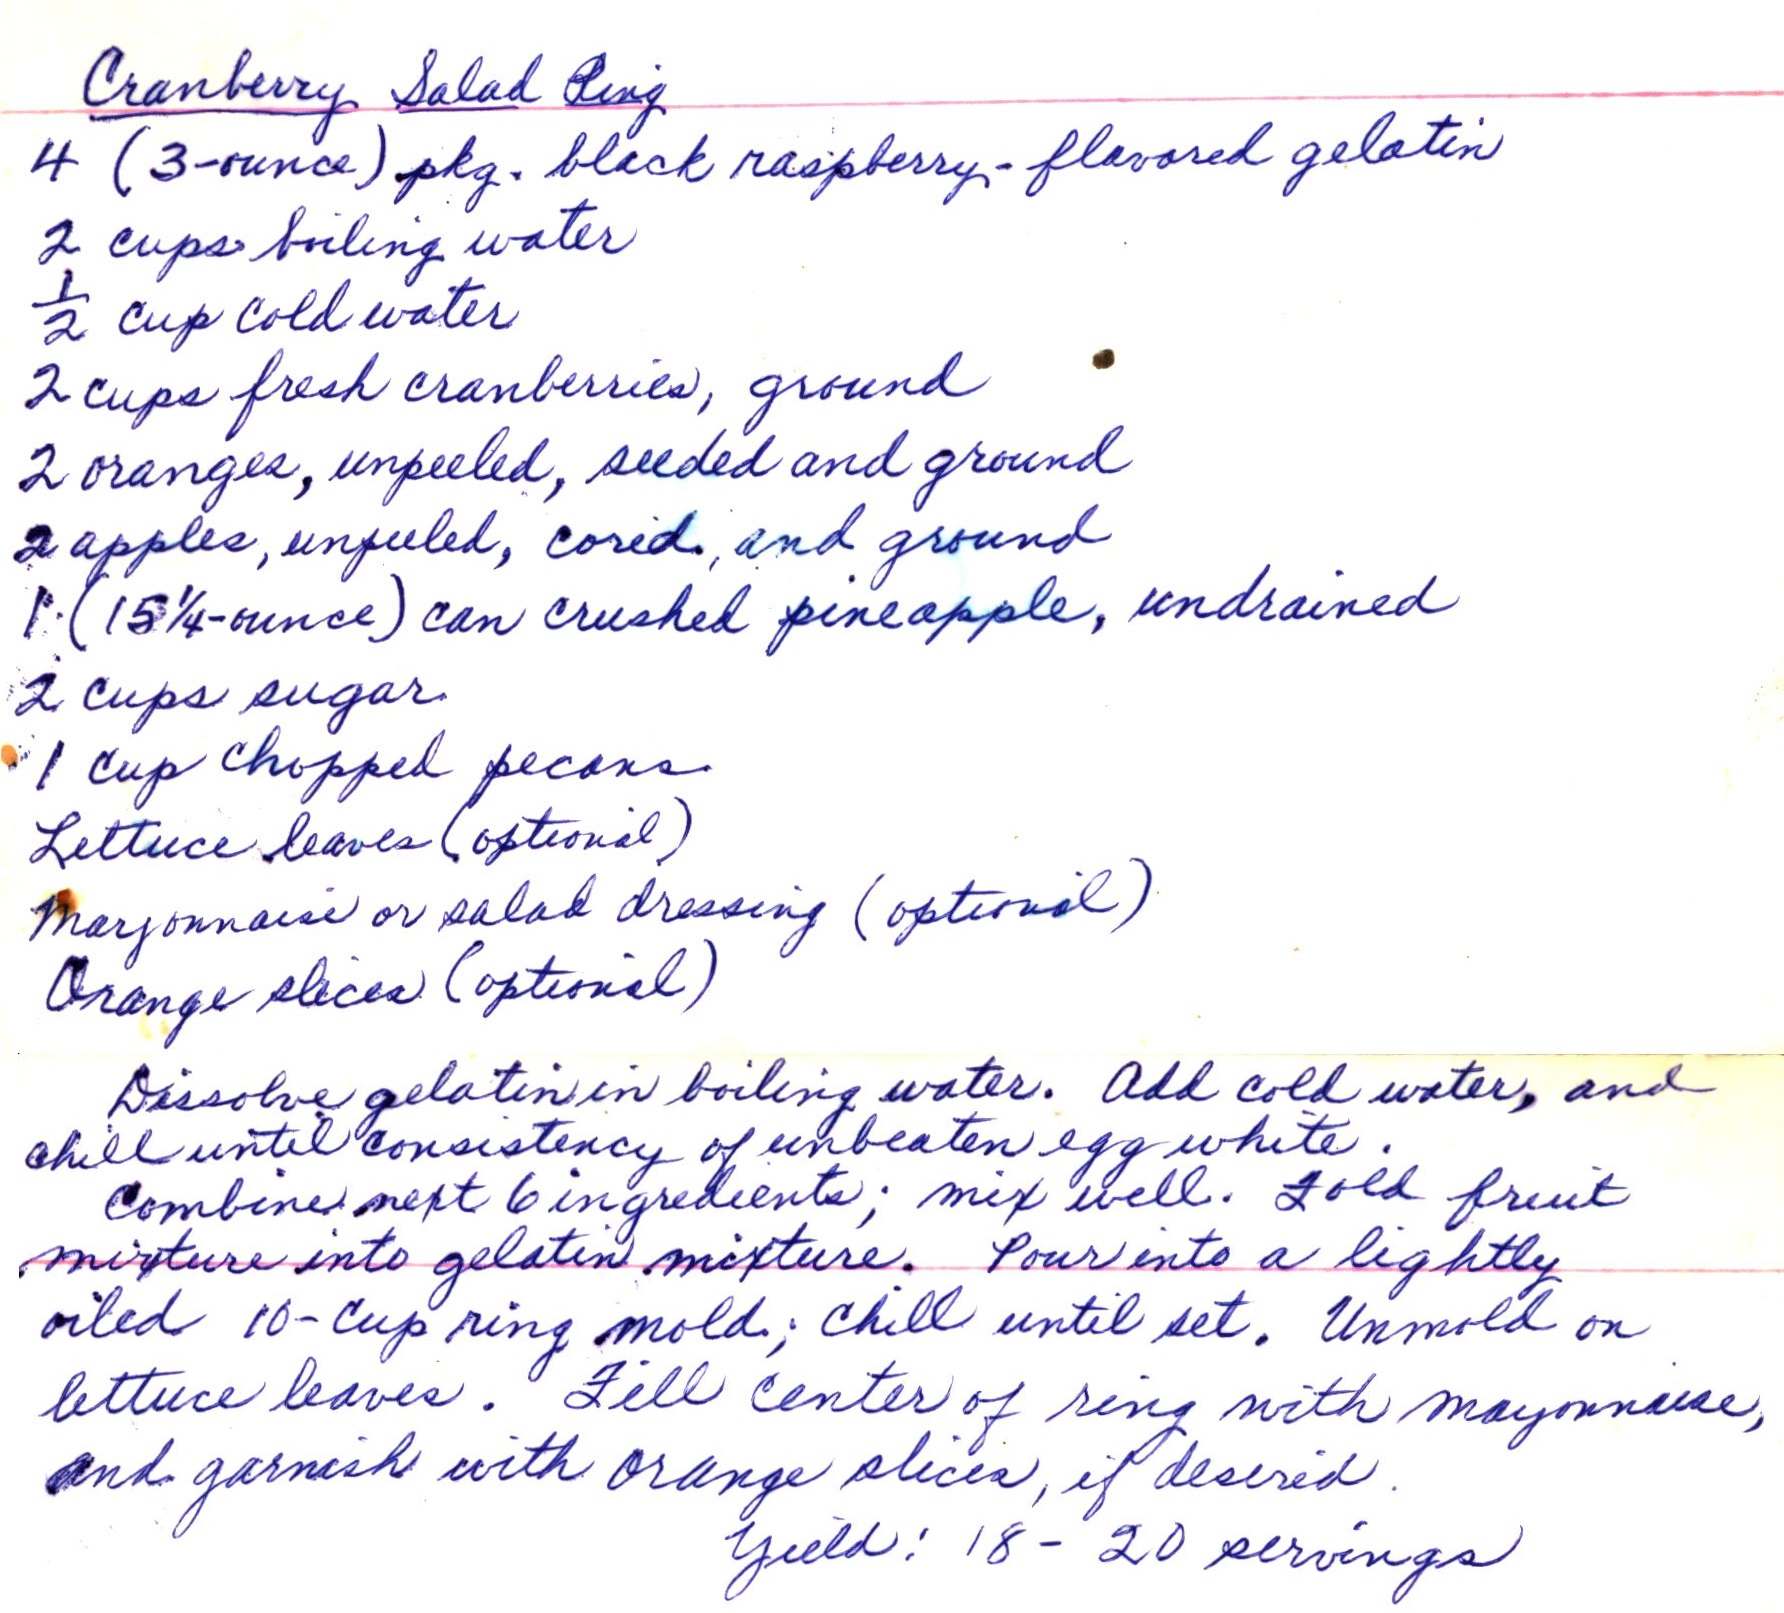 Cranberry Salad Ring
4 (3-ounce) pkg. black raspberry-flavored gelatin
2 cups boiling water
1/2 cup cold water
2 cups fresh cranberries, ground
2 oranges, unpeeled, seeded and ground
2 apples, unpeeled, cored, and ground
1 (15 1/4-ounce) can crushed pineapple, undrained
2 cups sugar
1 cup chopped pecans
Lettuce leaves (optional)
Mayonnaise or salad dressing (optional)
Orange slices (optional)
Dissolve gelatin in boiling water. Add cold water, and
chill until consistency of unbeaten egg white.
Combine next 6 ingredients; mix well. Fold fruit
mixture into gelatin mixture. Pour into a lightly
oiled 10-cup ring mold; chill until set. Unmold on
lettuce leaves. Fill center of ring with mayonnaise,
and garnish with orange slices, if desired.
Yield: 18-20 servings